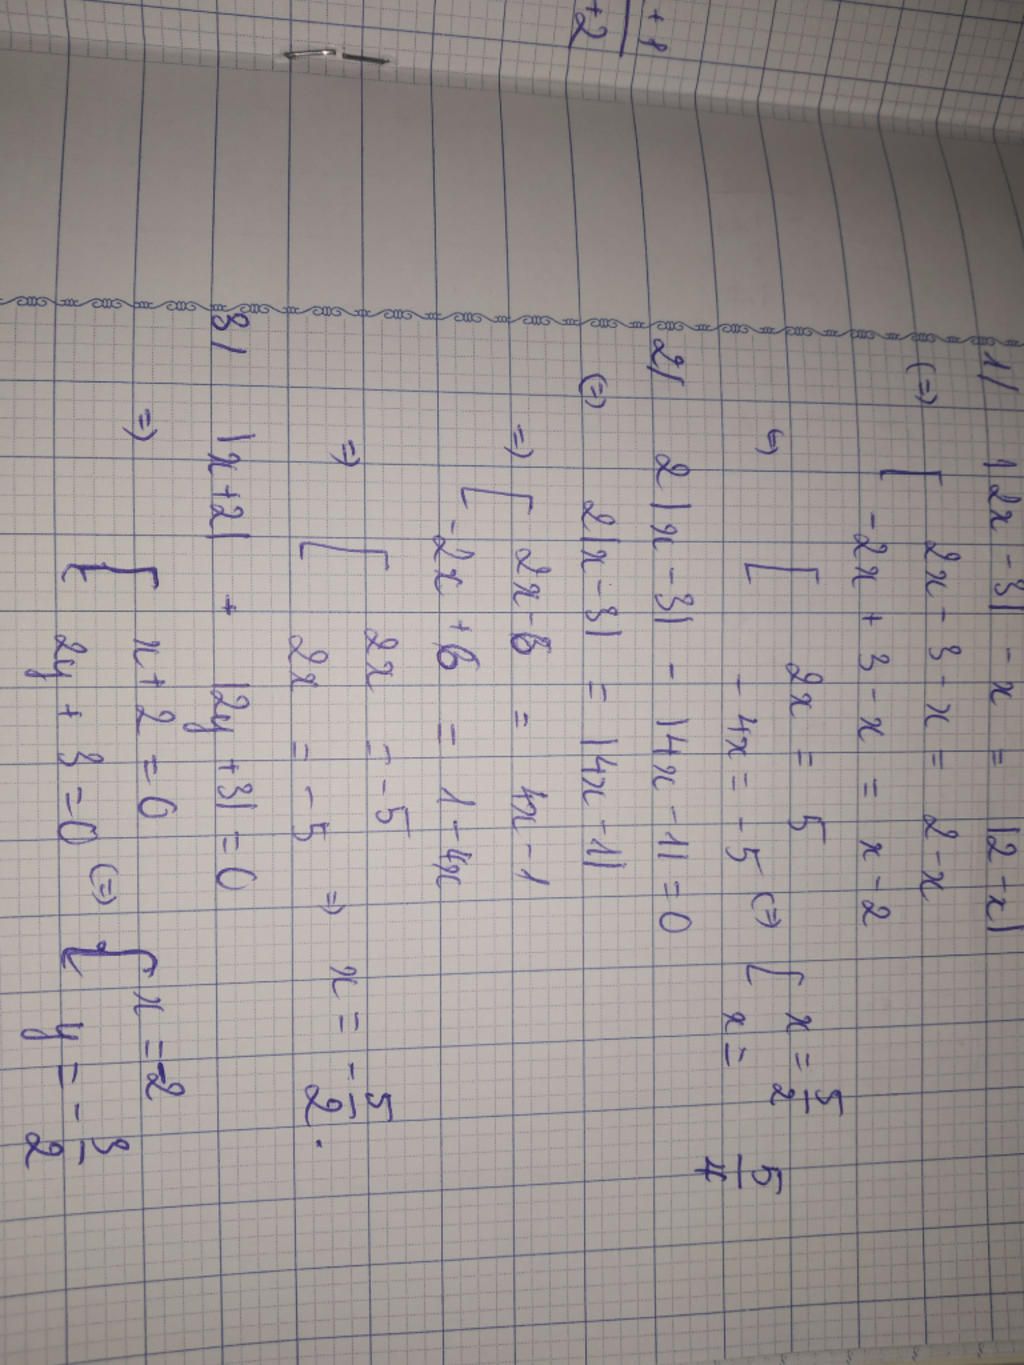 + 1
+2
1/ |2x - 3| - x = |2 - x|
(=) [ 2x - 3 - x = 2 - x
-2x + 3 - x = x - 2
[ 2x = 5
- 4x = - 5 (=) [ x = 5/2
x = 5/4
2/ 2|x - 3| - |4x - 1| = 0
(=) 2|x - 3| = |4x - 1|
=) [ 2x - 6 = 4x - 1
-2x + 6 = 1 - 4x
=) [ 2x = -5
2x = -5 =) x = - 5/2 .
3/ |x + 2| + |2y + 3| = 0
=) { x + 2 = 0
2y + 3 = 0 (=) { x = -2
y = - 3/2